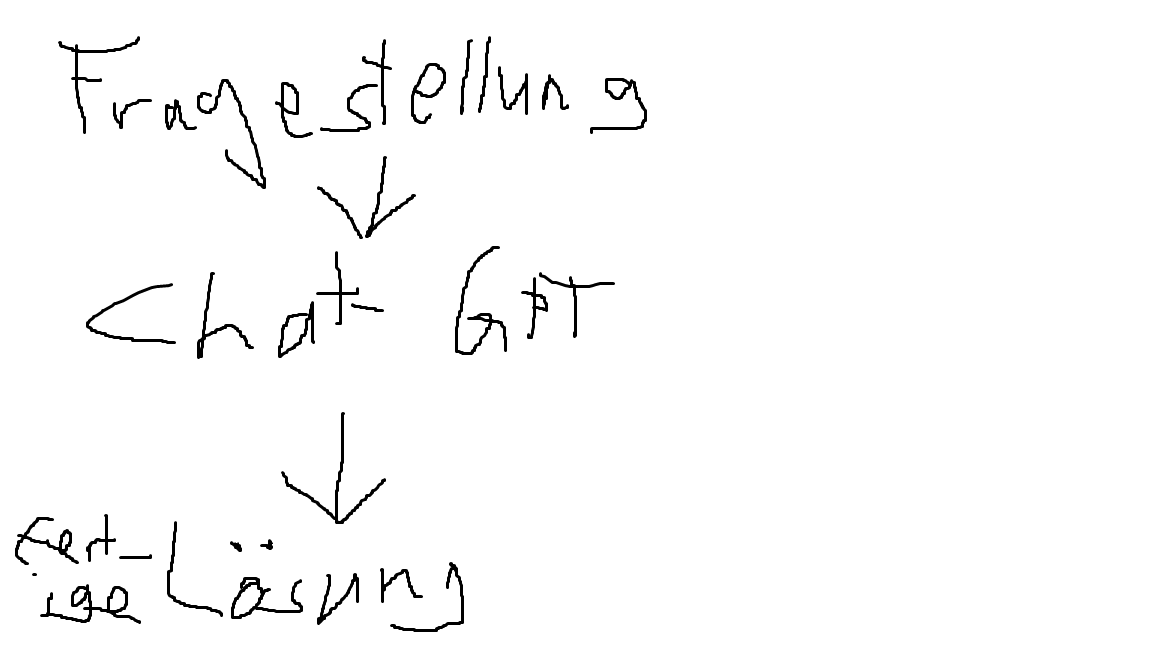 Fragestellung
Chat- GPT
Fert-
ige Lösung